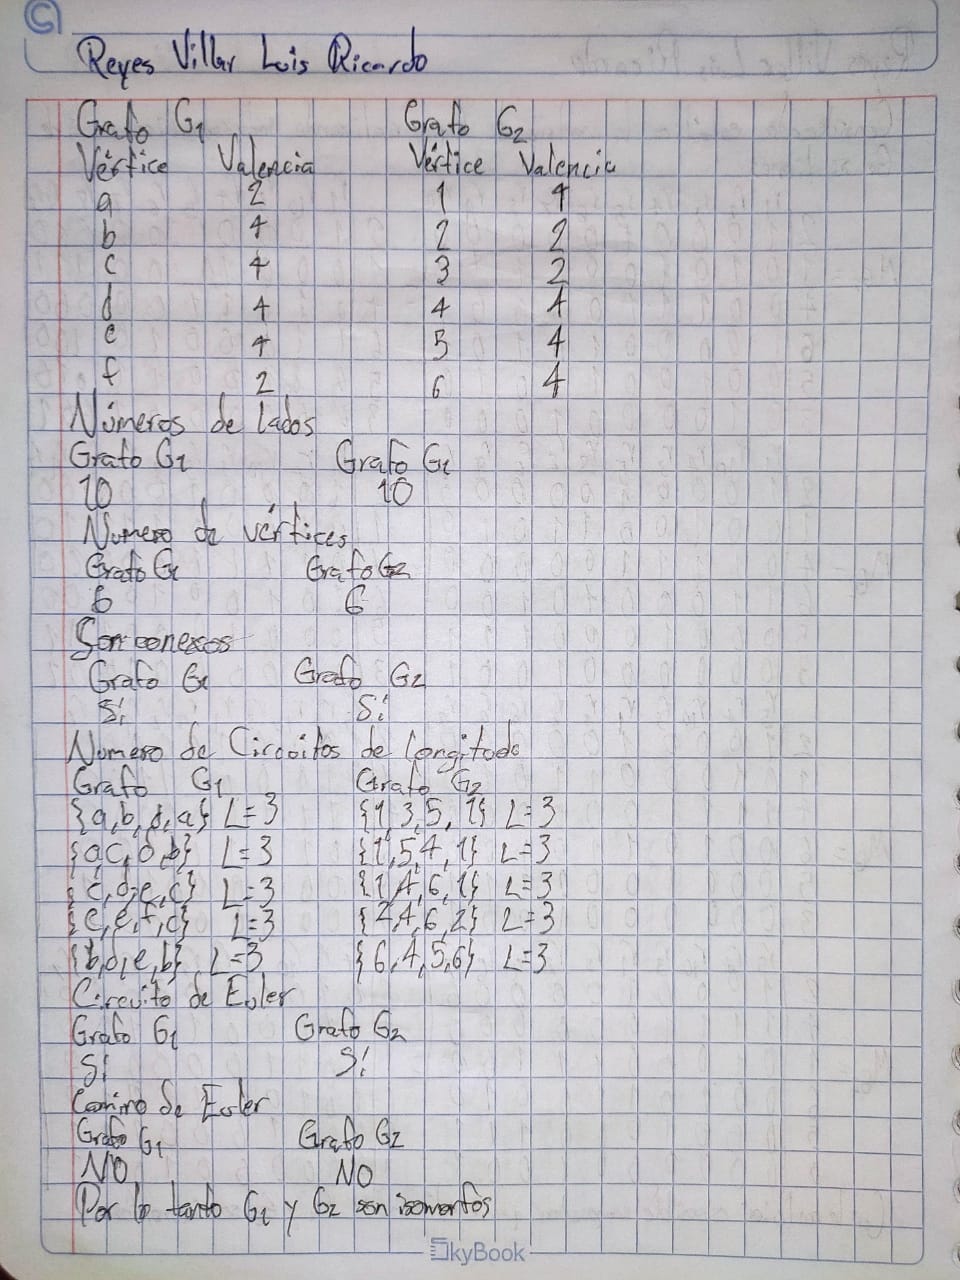 Reyes Villar Luis Ricardo
Grafo G1 Grafo G2
Vértice Valencia Vértice Valencia
a 2 1 4
b 4 2 2
c 4 3 2
d 4 4 4
e 4 5 4
f 2 6 4
Números de lados
Grafo G1 Grafo G2
10 10
Numero de vértices
Grafo G1 Grafo G2
6 6
Son conexos
Grafo G1 Grafo G2
Si Si
Numero de Circuitos de longitude
Grafo G1 Grafo G2
{a,b,d,a} L=3 {1,3,5,1} L=3
{a,c,d,b} L=3 {1,5,4,1} L=3
{c,d,e,c} L=3 {1,4,6,1} L=3
{c,e,f,c} L=3 {2,4,6,2} L=3
{b,d,e,b} L=3 {6,4,5,6} L=3
Circuito de Euler
Grafo G1 Grafo G2
Si Si
Camino de Euler
Grafo G1 Grafo G2
NO NO
Por lo tanto G1 y G2 son isomorfos
SkyBook